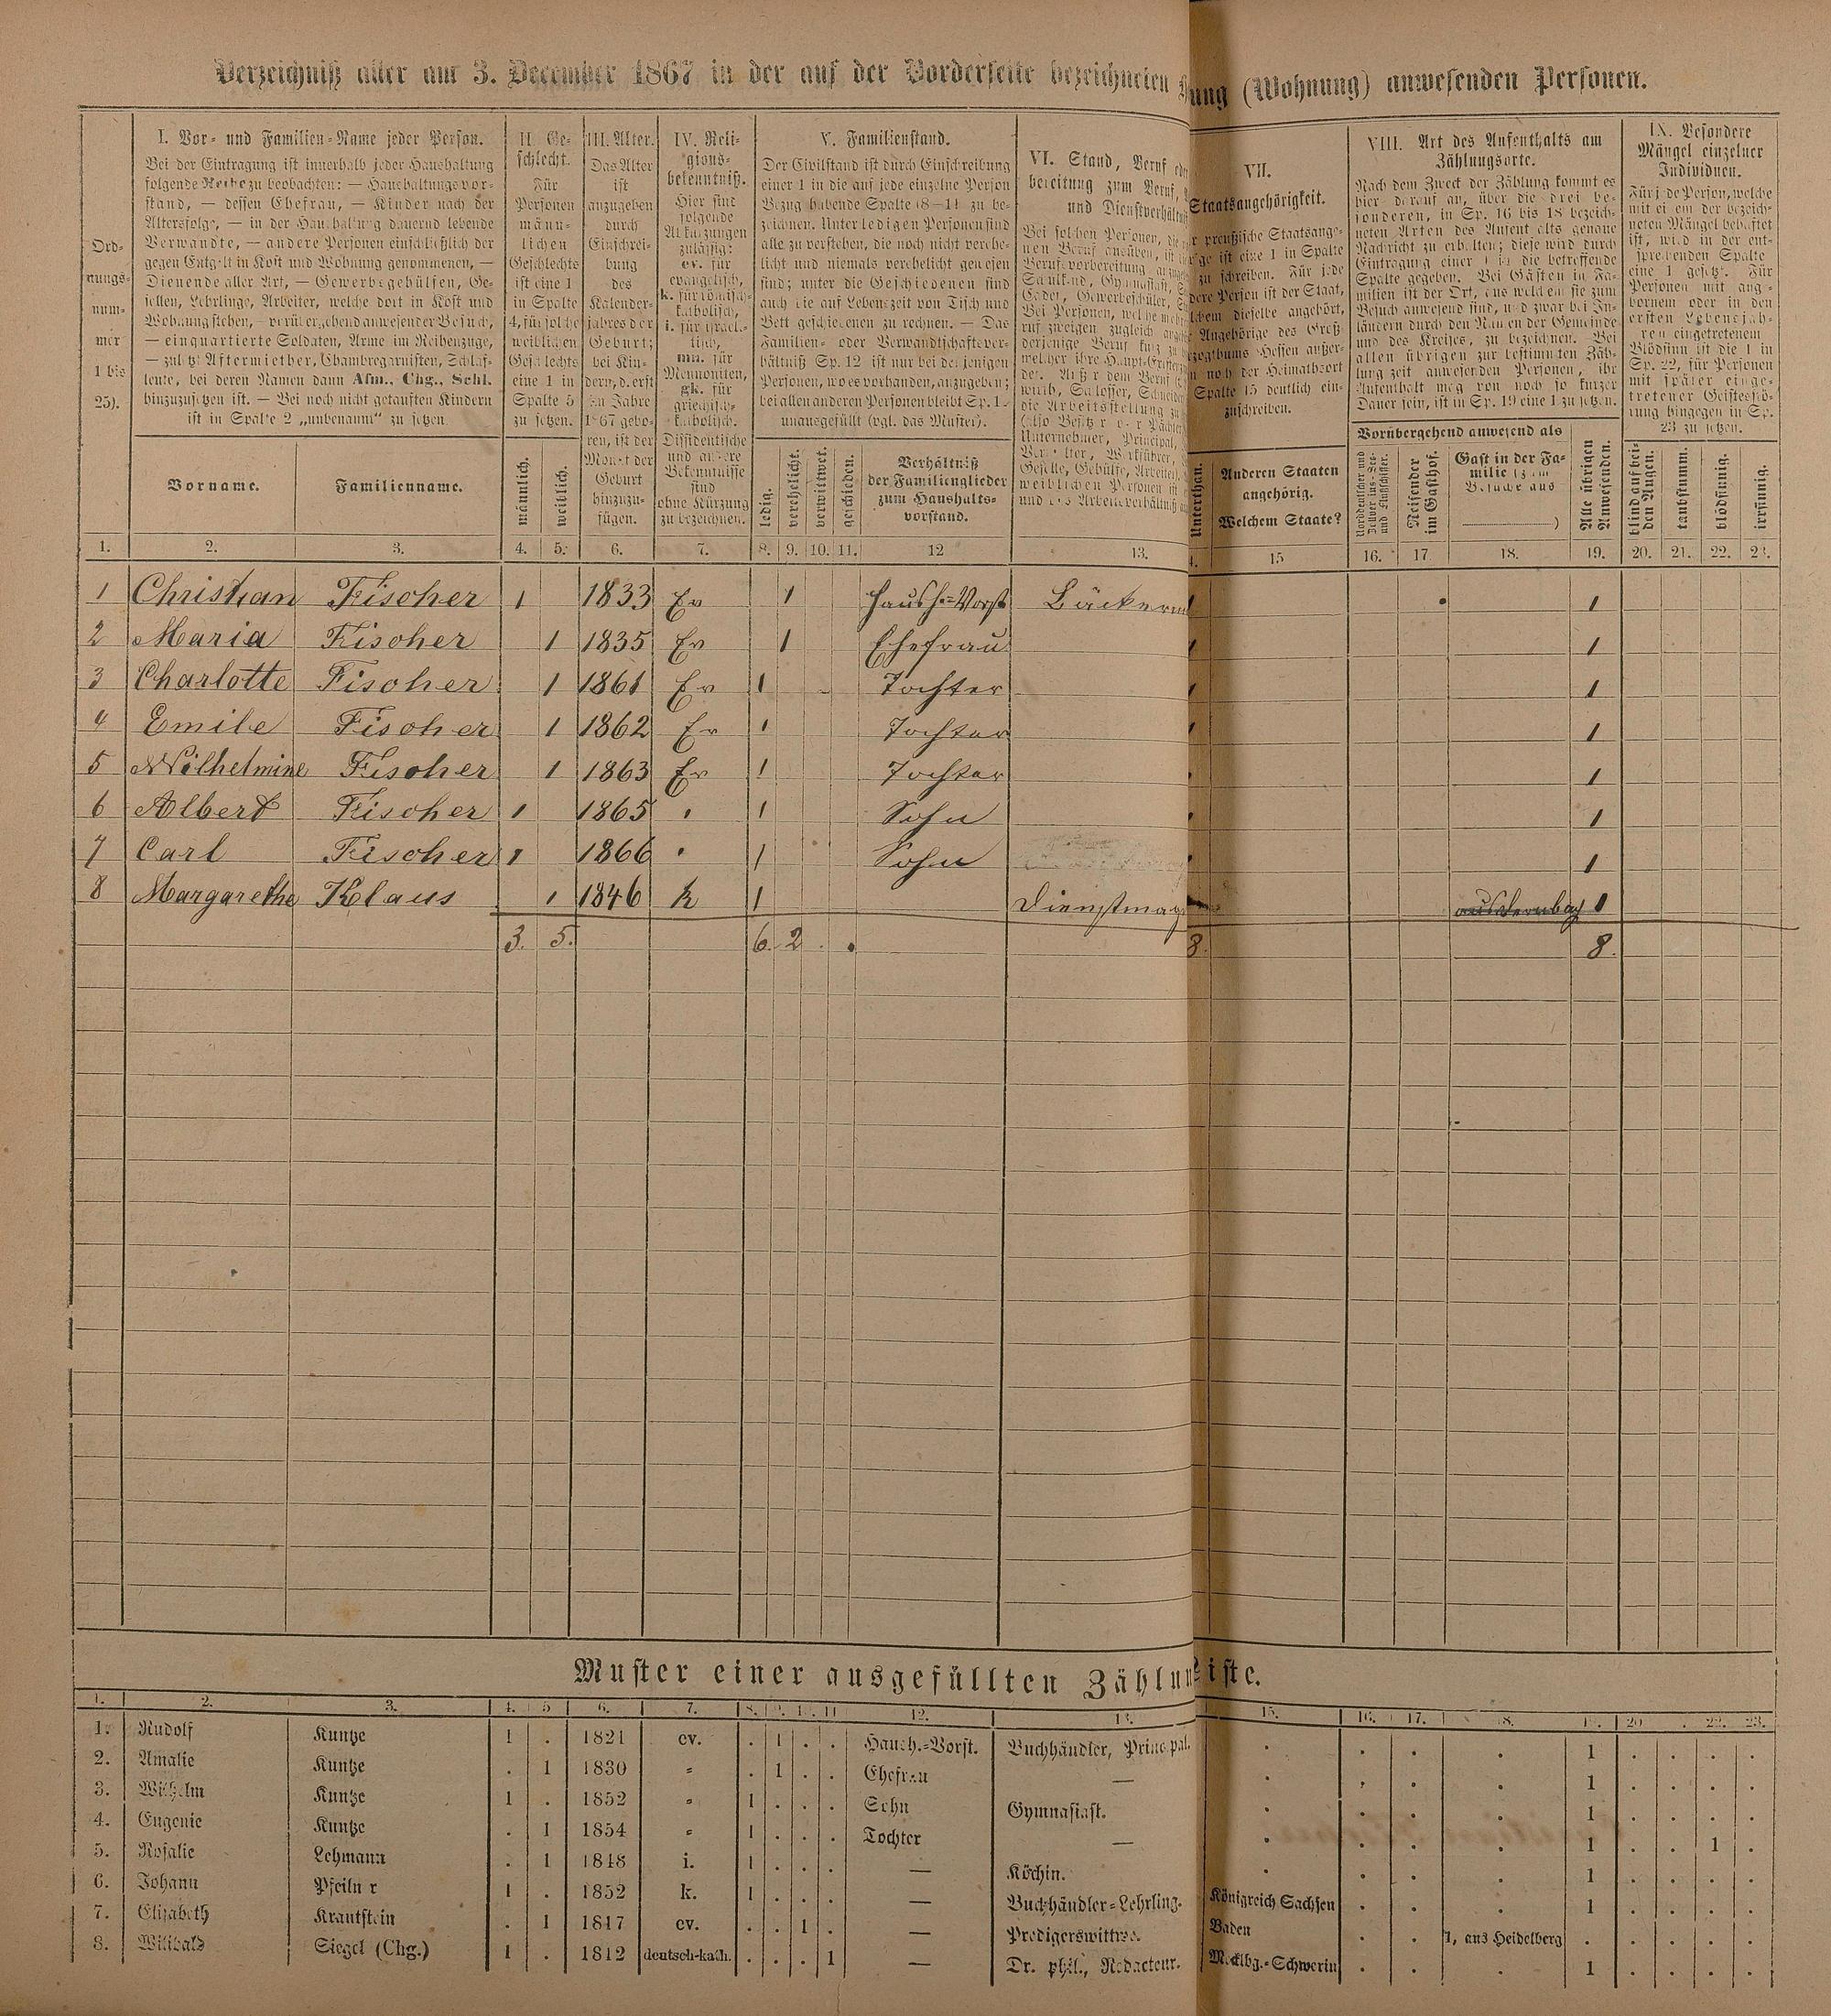 Verzeichniß aller am 3. December 1867 in der auf der Vorderseite bezeichneten
ung (Wohnung) anwesenden Personen.
Ord-
nungs-
num-
mer
1 bis
25).
I. Vor- und Familien-Name jeder Person.
Bei der Eintragung ist innerhalb jeder Haushaltung
folgende Reihe zu beobachten: — Haushaltungsvor-
stand, — dessen Ehefrau, — Kinder nach der
Altersfolge, — in der Haushaltung dauernd lebende
Verwandte, — andere Personen einschließlich der
gegen Entgelt in Kost und Wohnung genommenen, —
Dienende aller Art, — Gewerbsgehülfen, Ge-
sellen, Lehrlinge, Arbeiter, welche dort in Kost und
Wohnung stehen, — vorübergehend anwesender Besuch,
— einquartierte Soldaten, Arme im Reihenzuge,
— zuletzt Aftermiether, Chambregarnisten, Schlaf-
leute, bei deren Namen dann Afm., Chg., Schl.
hinzuzusetzen ist. — Bei noch nicht getauften Kindern
ist in Spalte 2 „unbenannt“ zu setzen.
Vorname.
Familienname.
II. Ge-
schlecht.
Für
Personen
männ-
lichen
Geschlechts
ist eine 1
in Spalte
4, für solche
weiblichen
Geschlechts
eine 1 in
Spalte 5
zu setzen.
männlich.
weiblich.
III. Alter.
Das Alter
ist
anzugeben
durch
Einschrei-
bung
des
Kalender-
jahres der
Geburt;
bei Kin-
dern, d. erst
im Jahre
1867 gebo-
ren, ist der
Monat der
Geburt
hinzuzu-
fügen.
IV. Reli-
gions-
bekenntniß.
Hier sind
folgende
Abkürzungen
zulässig:
ev. für
evangelisch,
k. für römisch-
katholisch,
i. für israel-
itisch,
mn. für
Mennoniten,
gk. für
griechisch-
katholisch.
Dissidentische
und andere
Bekenntnisse
sind
ohne Kürzung
zu bezeichnen.
V. Familienstand.
Der Civilstand ist durch Einschreibung
einer 1 in die auf jede einzelne Person
Bezug habende Spalte (8—11) zu be-
zeichnen. Unter ledigen Personen sind
alle zu verstehen, die noch nicht verehe-
licht und niemals verehelicht gewesen
sind; unter die Geschiedenen sind
auch die auf Lebenszeit von Tisch und
Bett geschiedenen zu rechnen. — Das
Familien- oder Verwandtschaftsver-
hältniß Sp. 12 ist nur bei denjenigen
Personen, wo es vorhanden, anzugeben;
bei allen anderen Personen bleibt Sp. 12
unausgefüllt (vgl. das Muster).
ledig.
verehelicht.
verwittwet.
geschieden.
Verhältniß
der Familienglieder
zum Haushalts-
vorstand.
VI. Stand, Beruf oder
bereitung zum Beruf,
und Dienstverhältniß
Bei solchen Personen, die
Bei Personen, welche
derjenige Beruf
die Arbeitsstellung zu
Unternehmer, Principal,
Geselle, Gehülfe, Arbeiter,
weiblichen Personen ist
VII.
Staatsangehörigkeit.
preußische Staatsange-
ist eine 1 in Spalte
zu schreiben. Für jede
Person ist der Staat,
dieselbe angehört,
Angehörige des Groß-
Hessen außer-
noch der Heimathsort
Spalte 15 deutlich ein-
zuschreiben.
Unterthan.
Anderen Staaten
angehörig.
Welchem Staate?
VIII. Art des Aufenthalts am
Zählungsorte.
Nach dem Zweck der Zählung kommt es
hier darauf an, über die drei be-
sonderen, in Sp. 16 bis 18 bezeich-
neten Arten des Aufenthalts genaue
Nachricht zu erhalten; diese wird durch
Eintragung einer 1 in die betreffende
Spalte gegeben. Bei Gästen in Fa-
milien ist der Ort, aus welchem sie zum
Besuch anwesend sind, und zwar bei In-
ländern durch den Namen der Gemeinde
und des Kreises, zu bezeichnen. Bei
allen übrigen zur bestimmten Zäh-
lungszeit anwesenden Personen, ihr
Aufenthalt mag von noch so kurzer
Dauer sein, ist in Sp. 19 eine 1 zu setzen.
Vorübergehend anwesend als
Reisender
im Gasthof.
Gast in der Fa-
milie (zum
Besuche aus
)
Alle übrigen
Anwesenden.
IX. Besondere
Mängel einzelner
Individuen.
Für jede Person, welche
mit einem der bezeich-
neten Mängel behaftet
ist, wird in der ent-
sprechenden Spalte
eine 1 gesetzt. Für
Personen mit ange-
bornem oder in den
ersten Lebensjah-
ren eingetretenem
Blödsinn ist die 1 in
Sp. 22, für Personen
mit später einge-
tretener Geistesstö-
rung hingegen in Sp.
23 zu setzen.
blind auf bei-
den Augen.
taubstumm.
blödsinnig.
irrsinnig.
1. 2. 3. 4. 5. 6. 7. 8. 9. 10. 11. 12 13. 15 16. 17 18. 19. 20. 21. 22. 23.
1 Christian Fischer 1 1833 Ev 1 Haush.-Vorst Bäckerm 1 1
2 Maria Fischer 1 1835 Ev 1 Ehefrau 1 1
3 Charlotte Fischer 1 1861 Ev 1 Tochter 1 1
4 Emilie Fischer 1 1862 Ev 1 Tochter 1 1
5 Wilhelmine Fischer 1 1863 Ev 1 Tochter 1
6 Albert Fischer 1 1865 " 1 Sohn 1
7 Carl Fischer 1 1866 " 1 Sohn 1
8 Margarethe Klaus 1 1846 k 1 Dienstmag 1
3. 5. 6. 2 8. 8.
Muster einer ausgefüllten Zählun iste.
1. 2. 3. 4. 5 6. 7. 8. 9. 1. 11 12. 13. 15. 16. 17. 18. 19. 20 22. 23.
1. Rudolf Kuntze 1 . 1821 ev. . 1 . . Haush.-Vorst. Buchhändler, Principal. . . . . 1 . . . .
2. Amalie Kuntze . 1 1830 " . 1 . . Ehefrau — . . . . 1 . . . .
3. Wilhelm Kuntze 1 . 1852 " 1 . . . Sohn Gymnasiast. . . . . 1 . . . .
4. Eugenie Kuntze . 1 1854 " 1 . . . Tochter — . . . . 1 . . 1 .
5. Rosalie Lehmann . 1 1848 i. 1 . . . — Köchin. . . . . 1 . . . .
6. Johann Pfeiln r 1 . 1852 k. 1 . . . — Buchhändler-Lehrling. Königreich Sachsen . . . 1 . . . .
7. Elisabeth Krautstein . 1 1817 ev. . . 1 . — Predigerswittwe. Baden . . 1, aus Heidelberg . . . . .
8. Willibald Siegel (Chg.) 1 . 1812 deutsch-kath. . . . 1 — Dr. phil., Redacteur. Mecklbg.-Schwerin . . . 1 . . . .